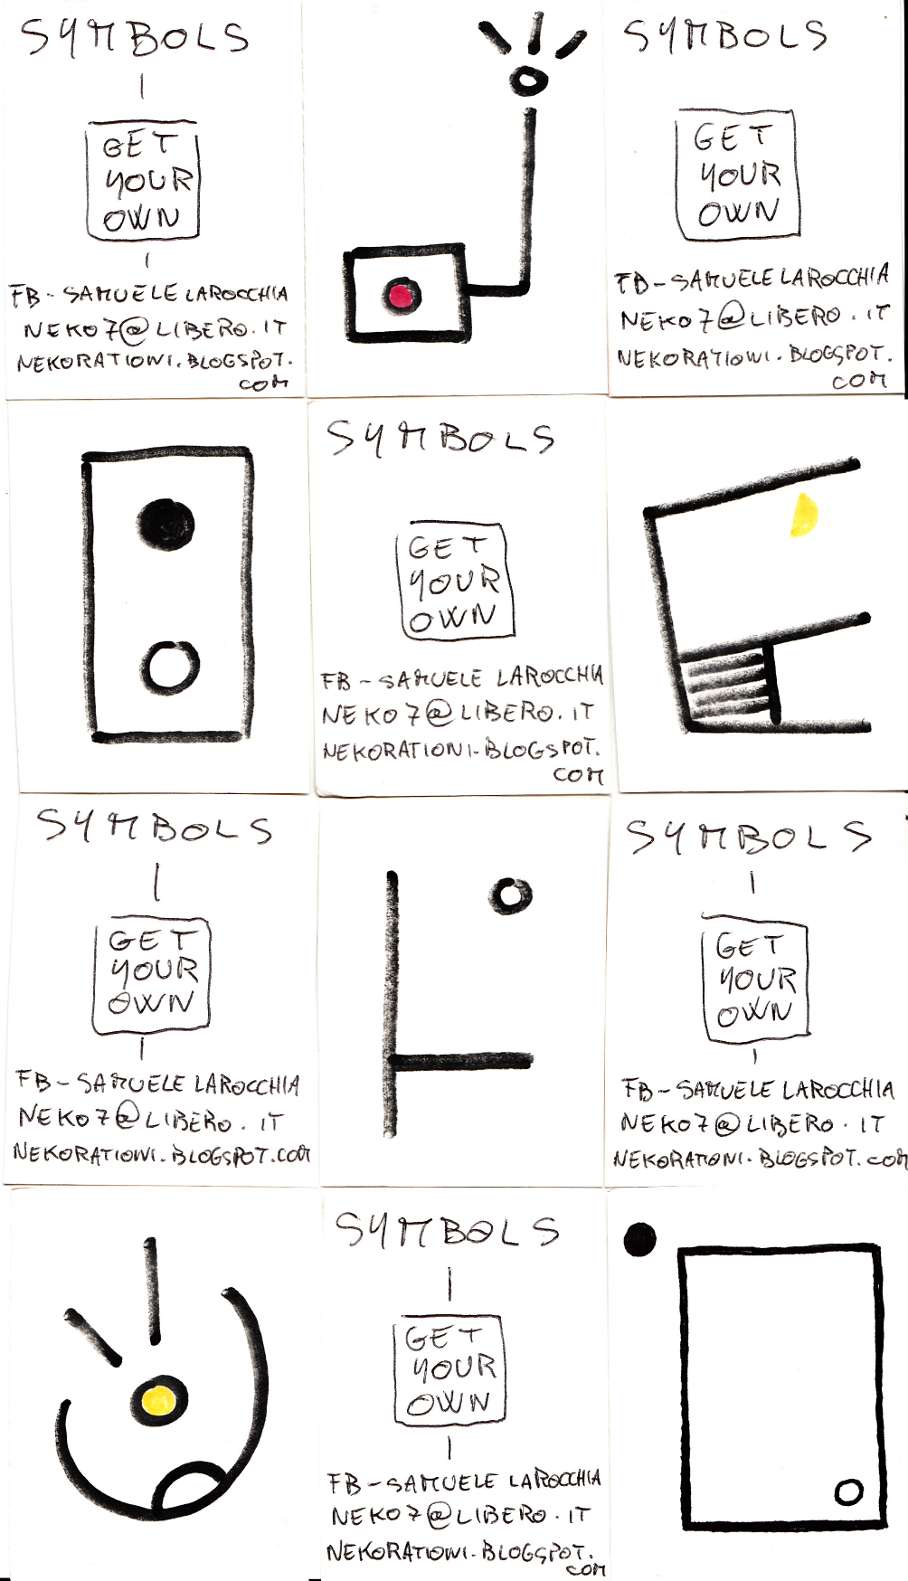 SYMBOLS
GET
YOUR
OWN
FB - SAMUELE LAROCCHIA
NEKO7@LIBERO.IT
NEKORATIONI.BLOGSPOT.
COM
SYMBOLS
GET
YOUR
OWN
FB - SAMUELE LAROCCHIA
NEKO7@LIBERO.IT
NEKORATIONI.BLOGSPOT.
COM
SYMBOLS
GET
YOUR
OWN
FB - SAMUELE LAROCCHIA
NEKO7@LIBERO.IT
NEKORATIONI.BLOGSPOT.
COM
SYMBOLS
GET
YOUR
OWN
FB - SAMUELE LAROCCHIA
NEKO7@LIBERO.IT
NEKORATIONI.BLOGSPOT.COM
SYMBOLS
GET
YOUR
OWN
FB - SAMUELE LAROCCHIA
NEKO7@LIBERO.IT
NEKORATIONI.BLOGSPOT.COM
SYMBOLS
GET
YOUR
OWN
FB - SAMUELE LAROCCHIA
NEKO7@LIBERO.IT
NEKORATIONI.BLOGSPOT.
COM